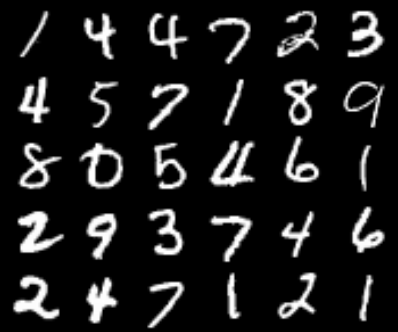 1 4 4 7 2 3
4 5 7 1 8 9
8 0 5 4 6 1
2 9 3 7 4 6
2 4 7 1 2 1